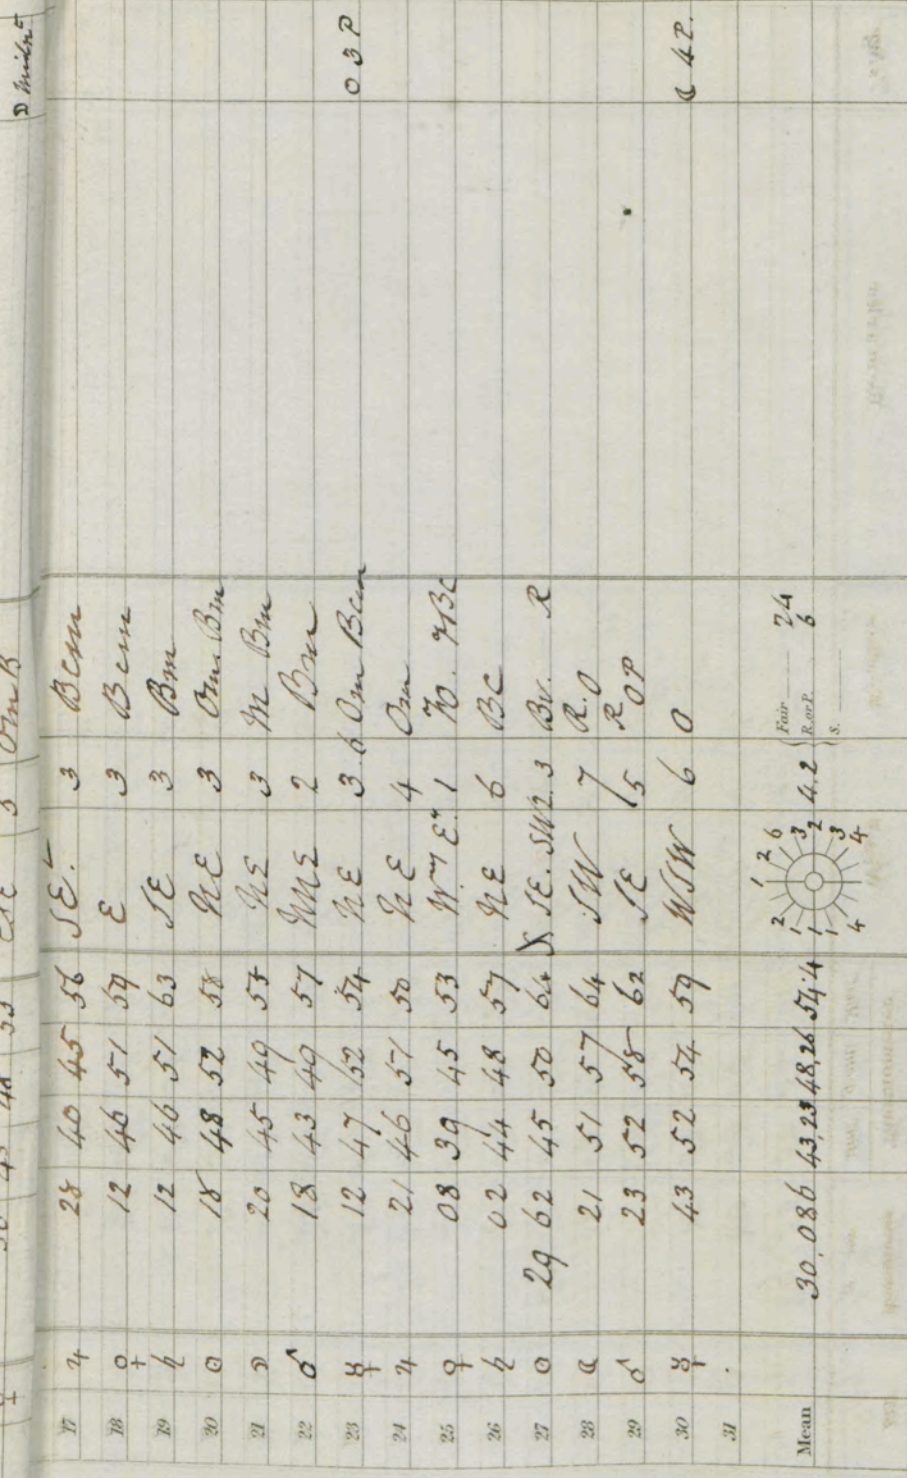 ☽ Midnt
17 ♃ 28 40 45 56 SE. 3 Bcm
18 ♀ 12 46 51 59 E 3 Bcm
19 ♄ 12 46 51 63 SE 3 Bm
20 ☉ 18 48 52 58 NE 3 Om Bm
21 ☽ 20 45 49 53 NE 3 m Bm
22 ♂ 18 43 49 57 NNE 2 Bm
23 ☿ 12 47 52 54 NE 3 6 Om Bcm O 3 P
24 ♃ 21 46 51 50 NE 4 Om
25 ♀ 08 39 45 53 1
26 ♄ 02 44 48 57 NE 6 BC
27 ☉ 29 62 45 50 64 SE. SW 2. 3 Bv. R
28 ☾ 21 51 57 64 SW 7 R. O
29 ♂ 23 52 58 62 SE 5 R OP
30 ☿ 43 52 54 59 WSW 6 O ☾ 4 P.
31 .
Mean 30,086 43,23 48,26 54.4 4.2
Fair 24
R. or P. 6
S.